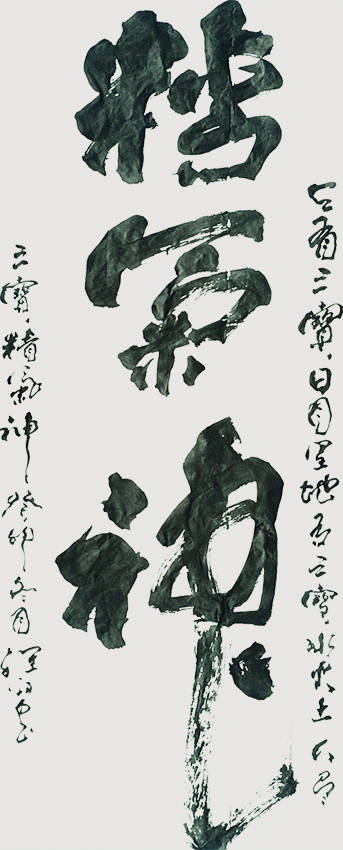 精氣神
天有三寶日月星地有三寶水火土人有
三寶精氣神癸卯冬月